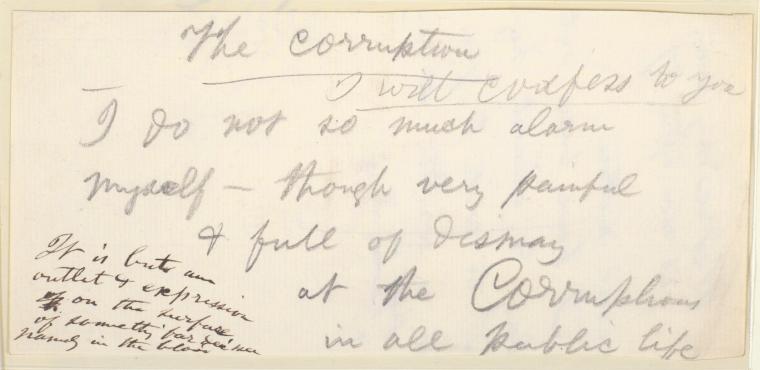 The corruption
I will confess to you
I do not so much alarm
myself — though very painful
& full of dismay
at the Corruptions
in all public life
It is but an
outlet & expression
on the surface
of somethi far deeper
namely in the blood